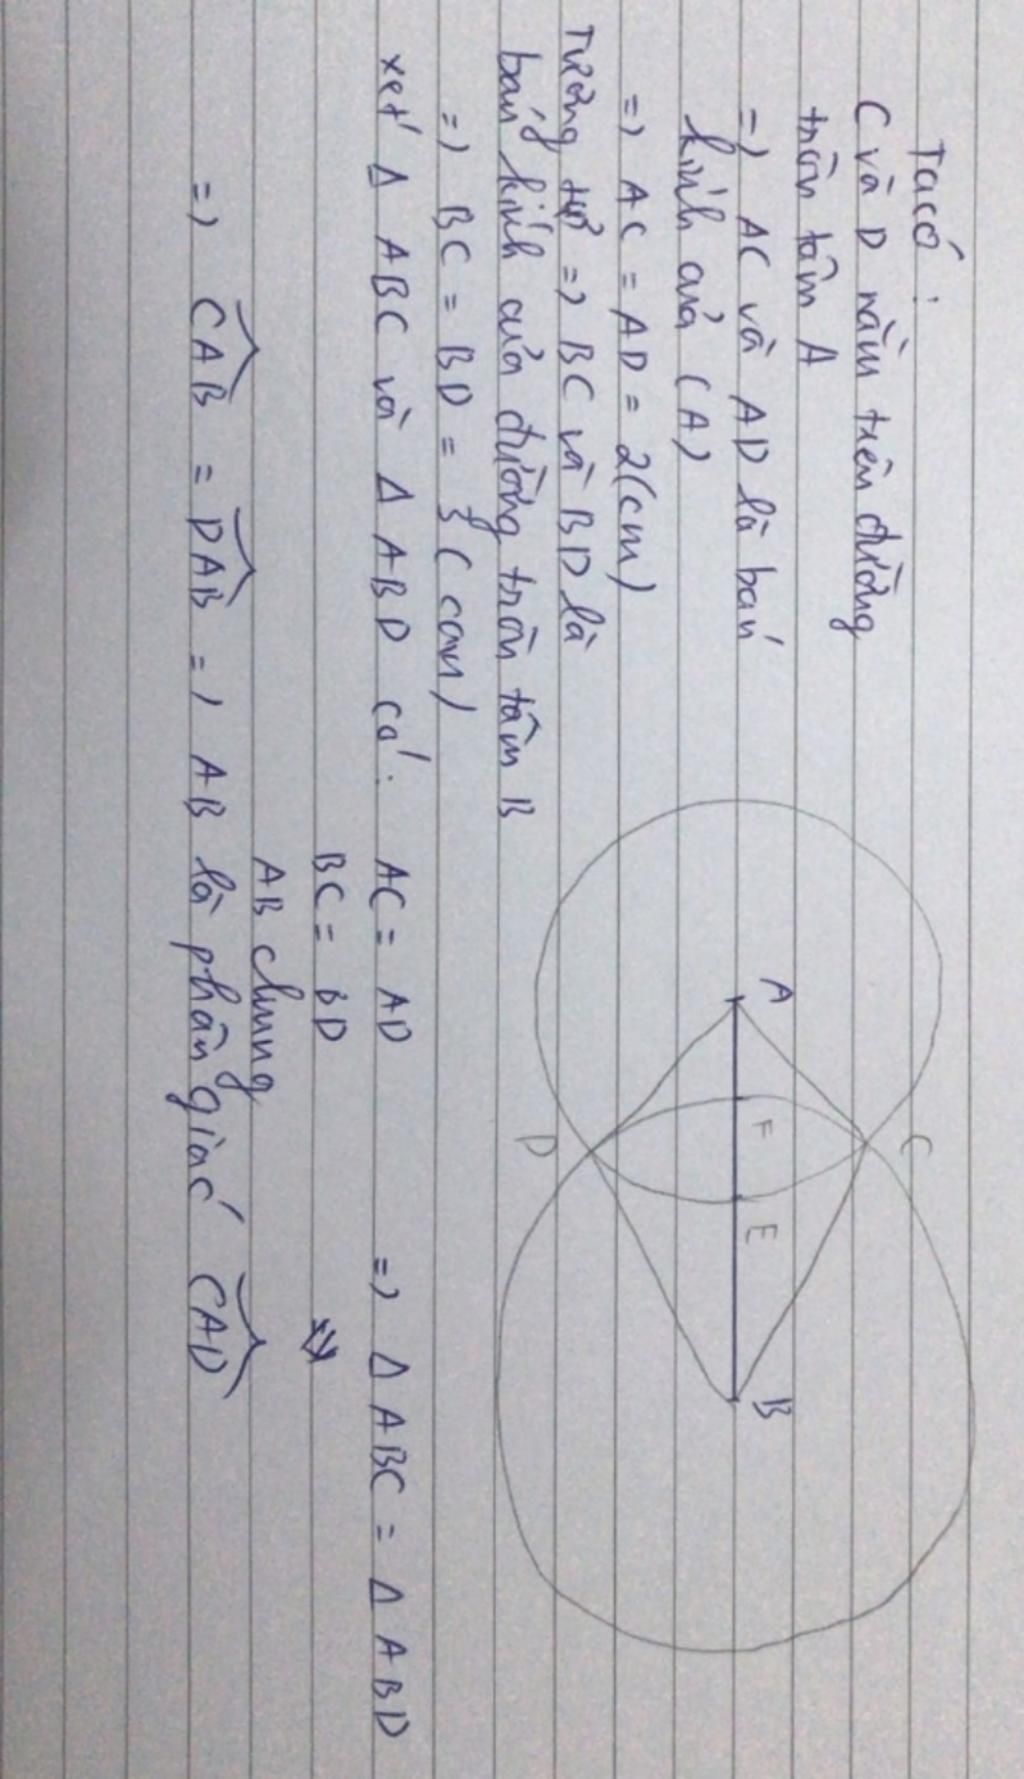 Ta có :
C và D nằm trên đường
tròn tâm A
=) AC và AD là bán
kính của (A)
=) AC = AD = 2(cm)
Tương tự =) BC và BD là
bán kính của đường tròn tâm B
=) BC = BD = 3 (cm)
xét Δ ABC và Δ ABD có : AC = AD =) Δ ABC = Δ ABD
BC = BD
AB chung
=) CAB = DAB =) AB là phân giác CAD
A
F
E
B
C
D